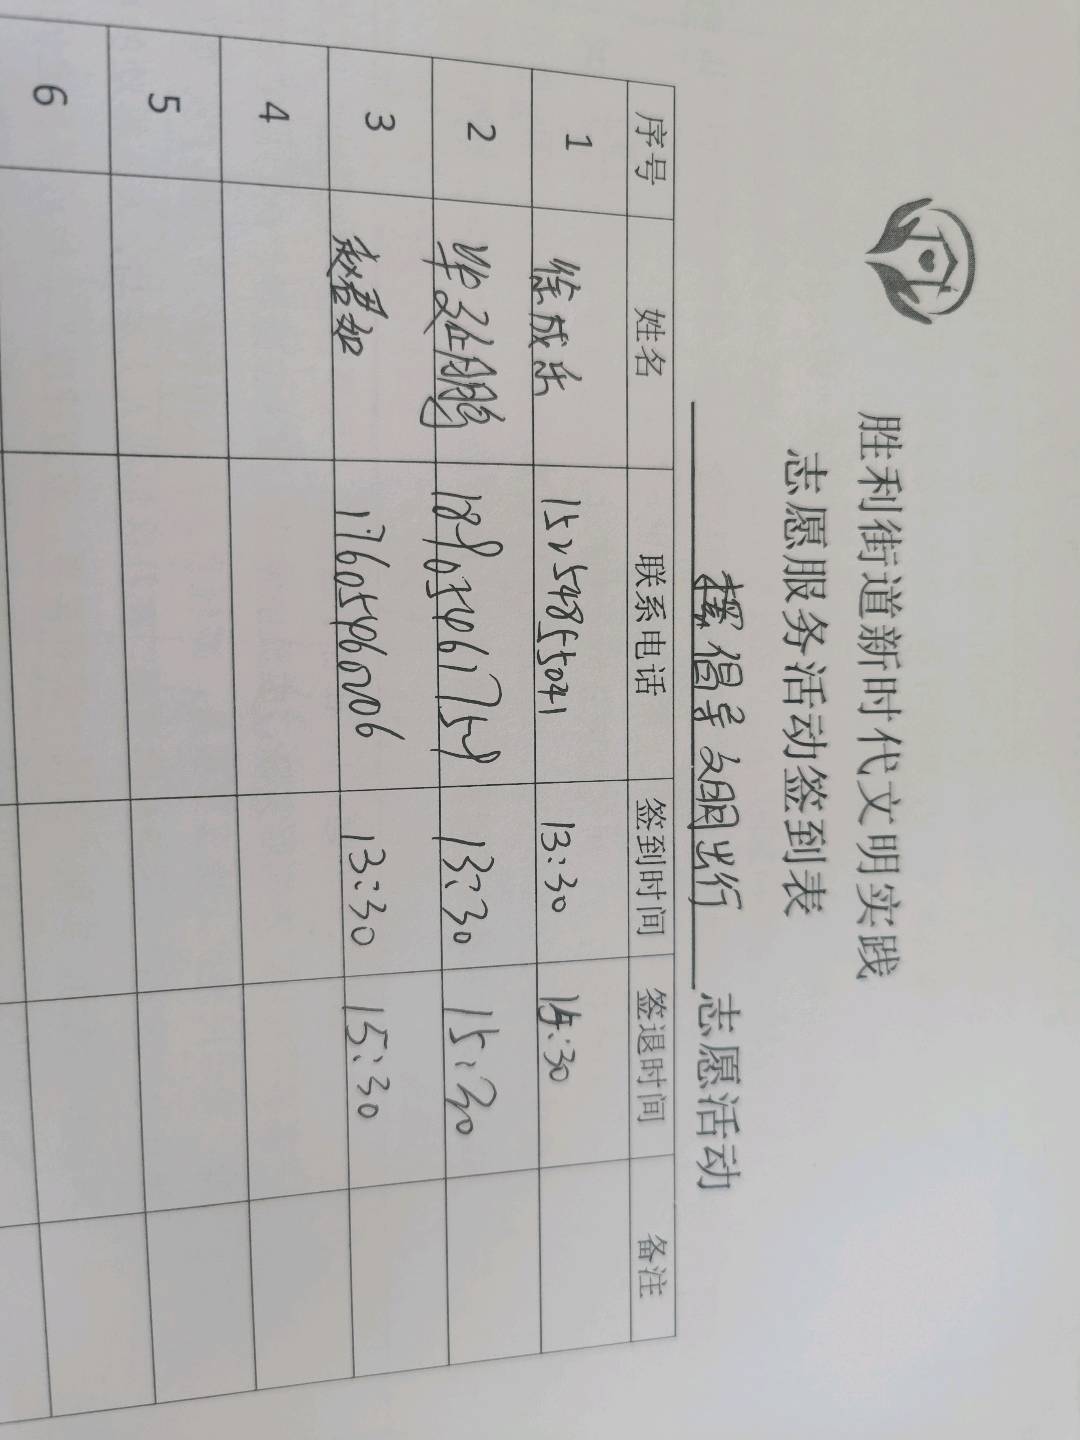 胜利街道新时代文明实践
志愿服务活动签到表
倡导文明出行 志愿活动
序号 姓名 联系电话 签到时间 签退时间 备注
1 徐成乐 15254855041 13:30 15:30
2 毕延鹏 18905461759 13:30 15:30
3 赵君如 17605460006 13:30 15:30
4
5
6